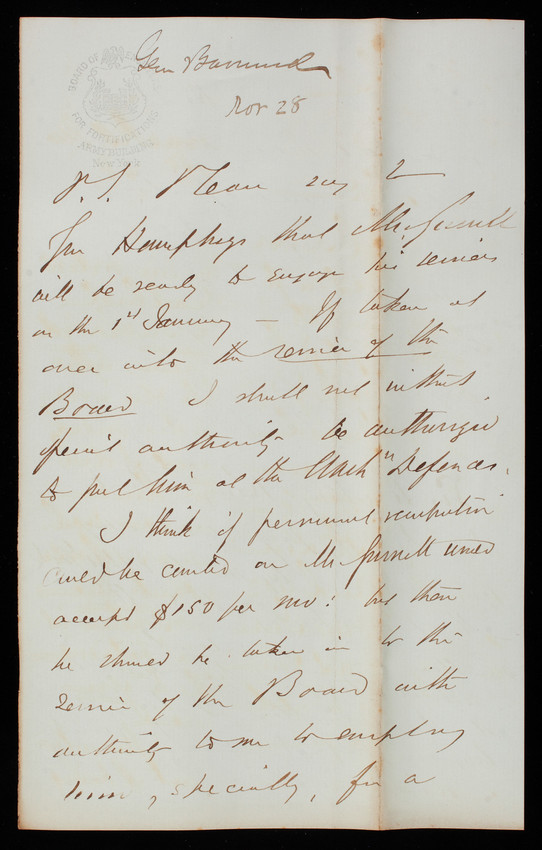 BOARD OF ENGINEERS
FOR FORTIFICATIONS
ARMY BUILDING
New York
Gen Barnard
Nov 28
P.S. Please say to
Gen Humphreys that Mr.
will be ready to engage his services
on the 1st January — If taken at
once into the service of the
Board I shall not without
special authority be authorized
to put him at the Wash'n Defences.
I think if permanent occupation
could be counted on Mr would
accept $150 per mo: but then
he should be taken in to the
service of the Board with
authority to me to employ
him, specially, for a